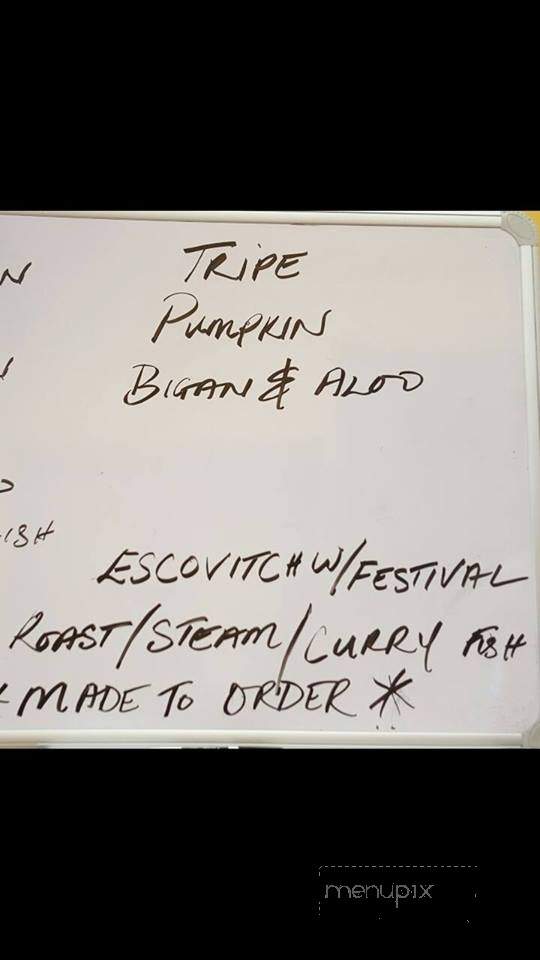 N
TRIPE
PUMPKIN
BIGAN & ALOO
ISH
ESCOVITCH W/FESTIVAL
ROAST/STEAM/CURRY FISH
MADE TO ORDER *
menupix